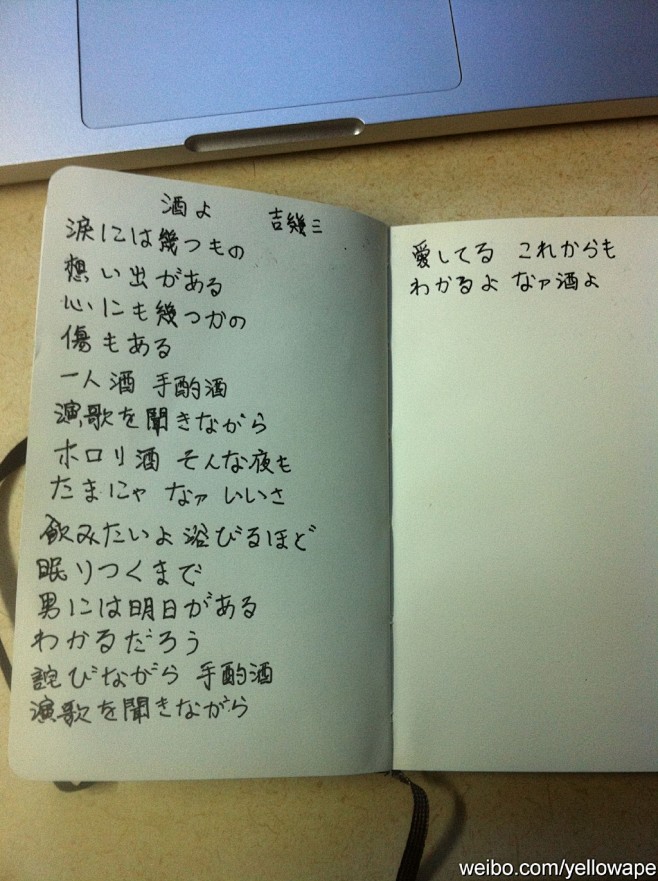 酒よ 吉幾三
涙には幾つもの
想い出がある
心にも幾つかの
傷もある
一人酒 手酌酒
演歌を聞きながら
ホロリ酒 そんな夜も
たまにゃ なァ いいさ
飲みたいよ 浴びるほど
眠りつくまで
男には明日がある
わかるだろう
詫びながら 手酌酒
演歌を聞きながら
愛してる これからも
わかるよ なァ酒よ
weibo.com/yellowape